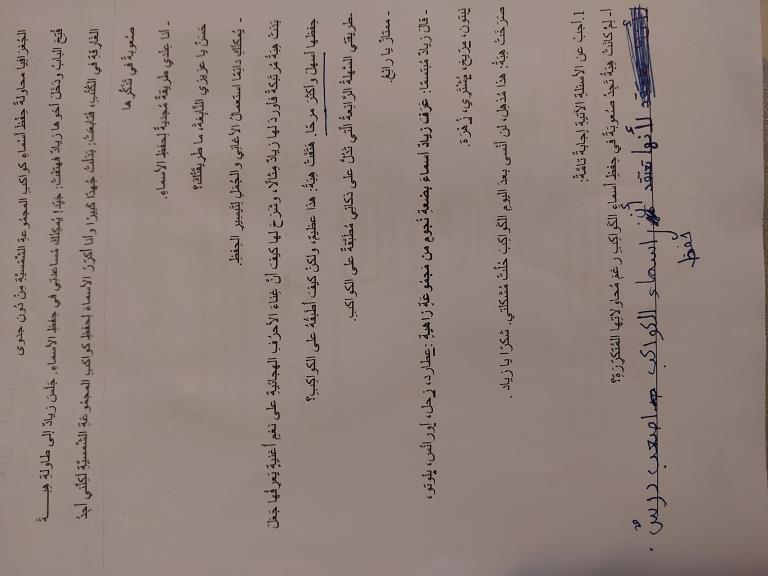 الجُغرافيا محاولةً حِفظَ أسماءِ كواكبِ المجموعةِ الشّمسيّةِ مِنْ دُونِ جدوى
فُتِحَ البابُ ودَخَلَ أخوها زيادٌ فهتفَتْ: جَيّدٌ! يُمكِنُكَ مُساعدتي في حِفظِ الأسماءِ. جَلَسَ زيادٌ إلى طاولةِ هِبـــــةَ
الغارِقةِ في الكُتُبِ، فتابعَتْ: بَذَلْتُ جُهدًا كبيرًا وأنا أكرّرُ الأسماءَ لِحفظِ كواكبِ المجموعةِ الشّمسيّةِ لكنّني أجِدُ
صُعوبةً في تَذَكُّرِها
- أنا عِندي طريقةٌ مُجديةٌ لِحفظِ الأسماءِ.
حَسَنٌ يا عزيزي النّابِغةَ، ما طريقتُكَ؟
- يُمكِنُكِ دائمًا استعمالُ الأغاني والجُمَلِ لِتيسيرِ الحِفظِ.
بَدَتْ هِبةُ مُرتبكةً فأوردَ لها زيادٌ مِثالًا، وشَرَحَ لها كيفَ أنَّ غِناءَ الأحرُفِ الهجائيّةِ على نغمِ أغنيةٍ يَعرفُها جَعَلَ
حِفظَها أسهلَ وأكثرَ مرحًا. هتفَتْ هِبةُ: هذا عظيمٌ، ولكنْ كيفَ أُطبِّقُهُ على الكواكِبِ؟
طريقتي السّهلةُ الرّائعةُ الّتي تَدُلُّ على ذكائي مُطبّقةٌ على الكواكبِ.
- ممتازٌ يا رائعُ.
- قالَ زيادٌ مُبتسمًا: عَرَفَ زيادٌ أسماءَ بضعةِ نُجومٍ من مَجموعةٍ زاهيةٍ :عطارد، زحل، أورانُس، بلوتو،
نبتون، مرّيخ، مُشتري، زُهَرَة.
صَرَخَتْ هِبةُ: هذا مُذهِلٌ، لن أنسى بعدَ اليومِ الكواكبَ حُلَّتْ مُشكلتي. شكرًا يا زياد .
1.أجِبْ عن الأسئلةِ الآتيةِ إجابةً تامّةً:
أ- لِمَ كانَتْ هِبَةُ تَجِدُ صُعوبَةً في حِفظِ أسماءِ الكواكِبِ رغمَ مُحاولاتِها المُتكرّرَةِ؟
لأنها تعتقد أن أسماء الكواكب اصعب درسٌ .
حفظ